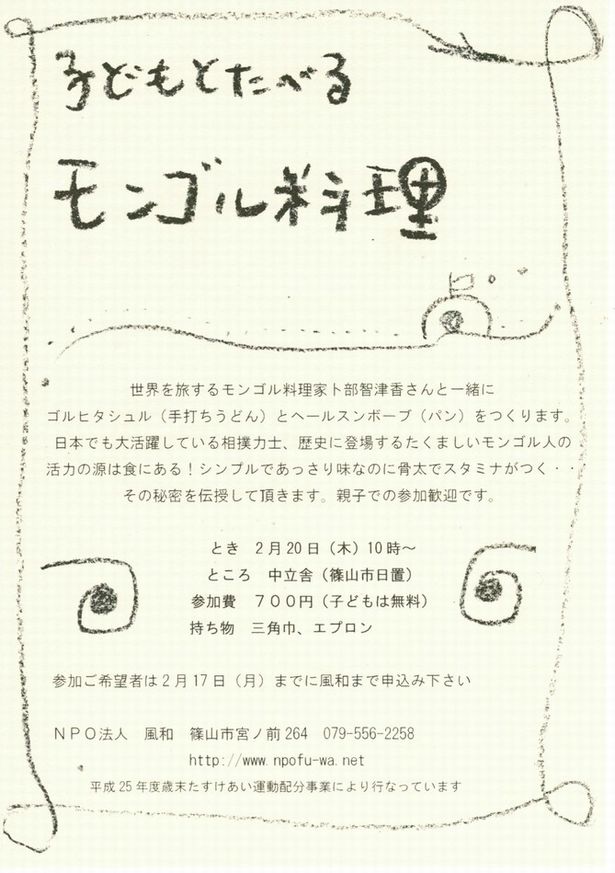 子どもとたべる
モンゴル料理
世界を旅するモンゴル料理家卜部智津香さんと一緒に
ゴルヒタシュル（手打ちうどん）とヘールスンボーブ（パン）をつくります。
日本でも大活躍している相撲力士、歴史に登場するたくましいモンゴル人の
活力の源は食にある！シンプルであっさり味なのに骨太でスタミナがつく・・
その秘密を伝授して頂きます。親子での参加歓迎です。
とき　2月20日（木）10時～
ところ　中立舎（篠山市日置）
参加費　７００円（子どもは無料）
持ち物　三角巾、エプロン
参加ご希望者は2月17日（月）までに風和まで申込み下さい
ＮＰＯ法人　風和　篠山市宮ノ前264　079-556-2258
http://www.npofu-wa.net
平成25年度歳末たすけあい運動配分事業により行なっています